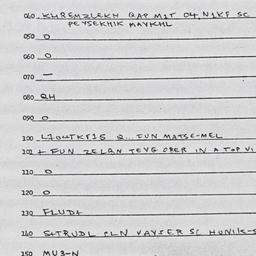 040 KHREMZLEKH GAP MIT 04 NIKF SC
PEYSEKHIK MAYKHL
050 0
060 0
070 —
080 QH
090 0
100 Q... FUN MATSE-MEL
101 + FUN ZELBN TEYG OBER IN A TOP VI
110 0
120 0
130 FLUDT
140 SHTRUDL FLN VAYSER SC HONIK-S
150 MU3-N